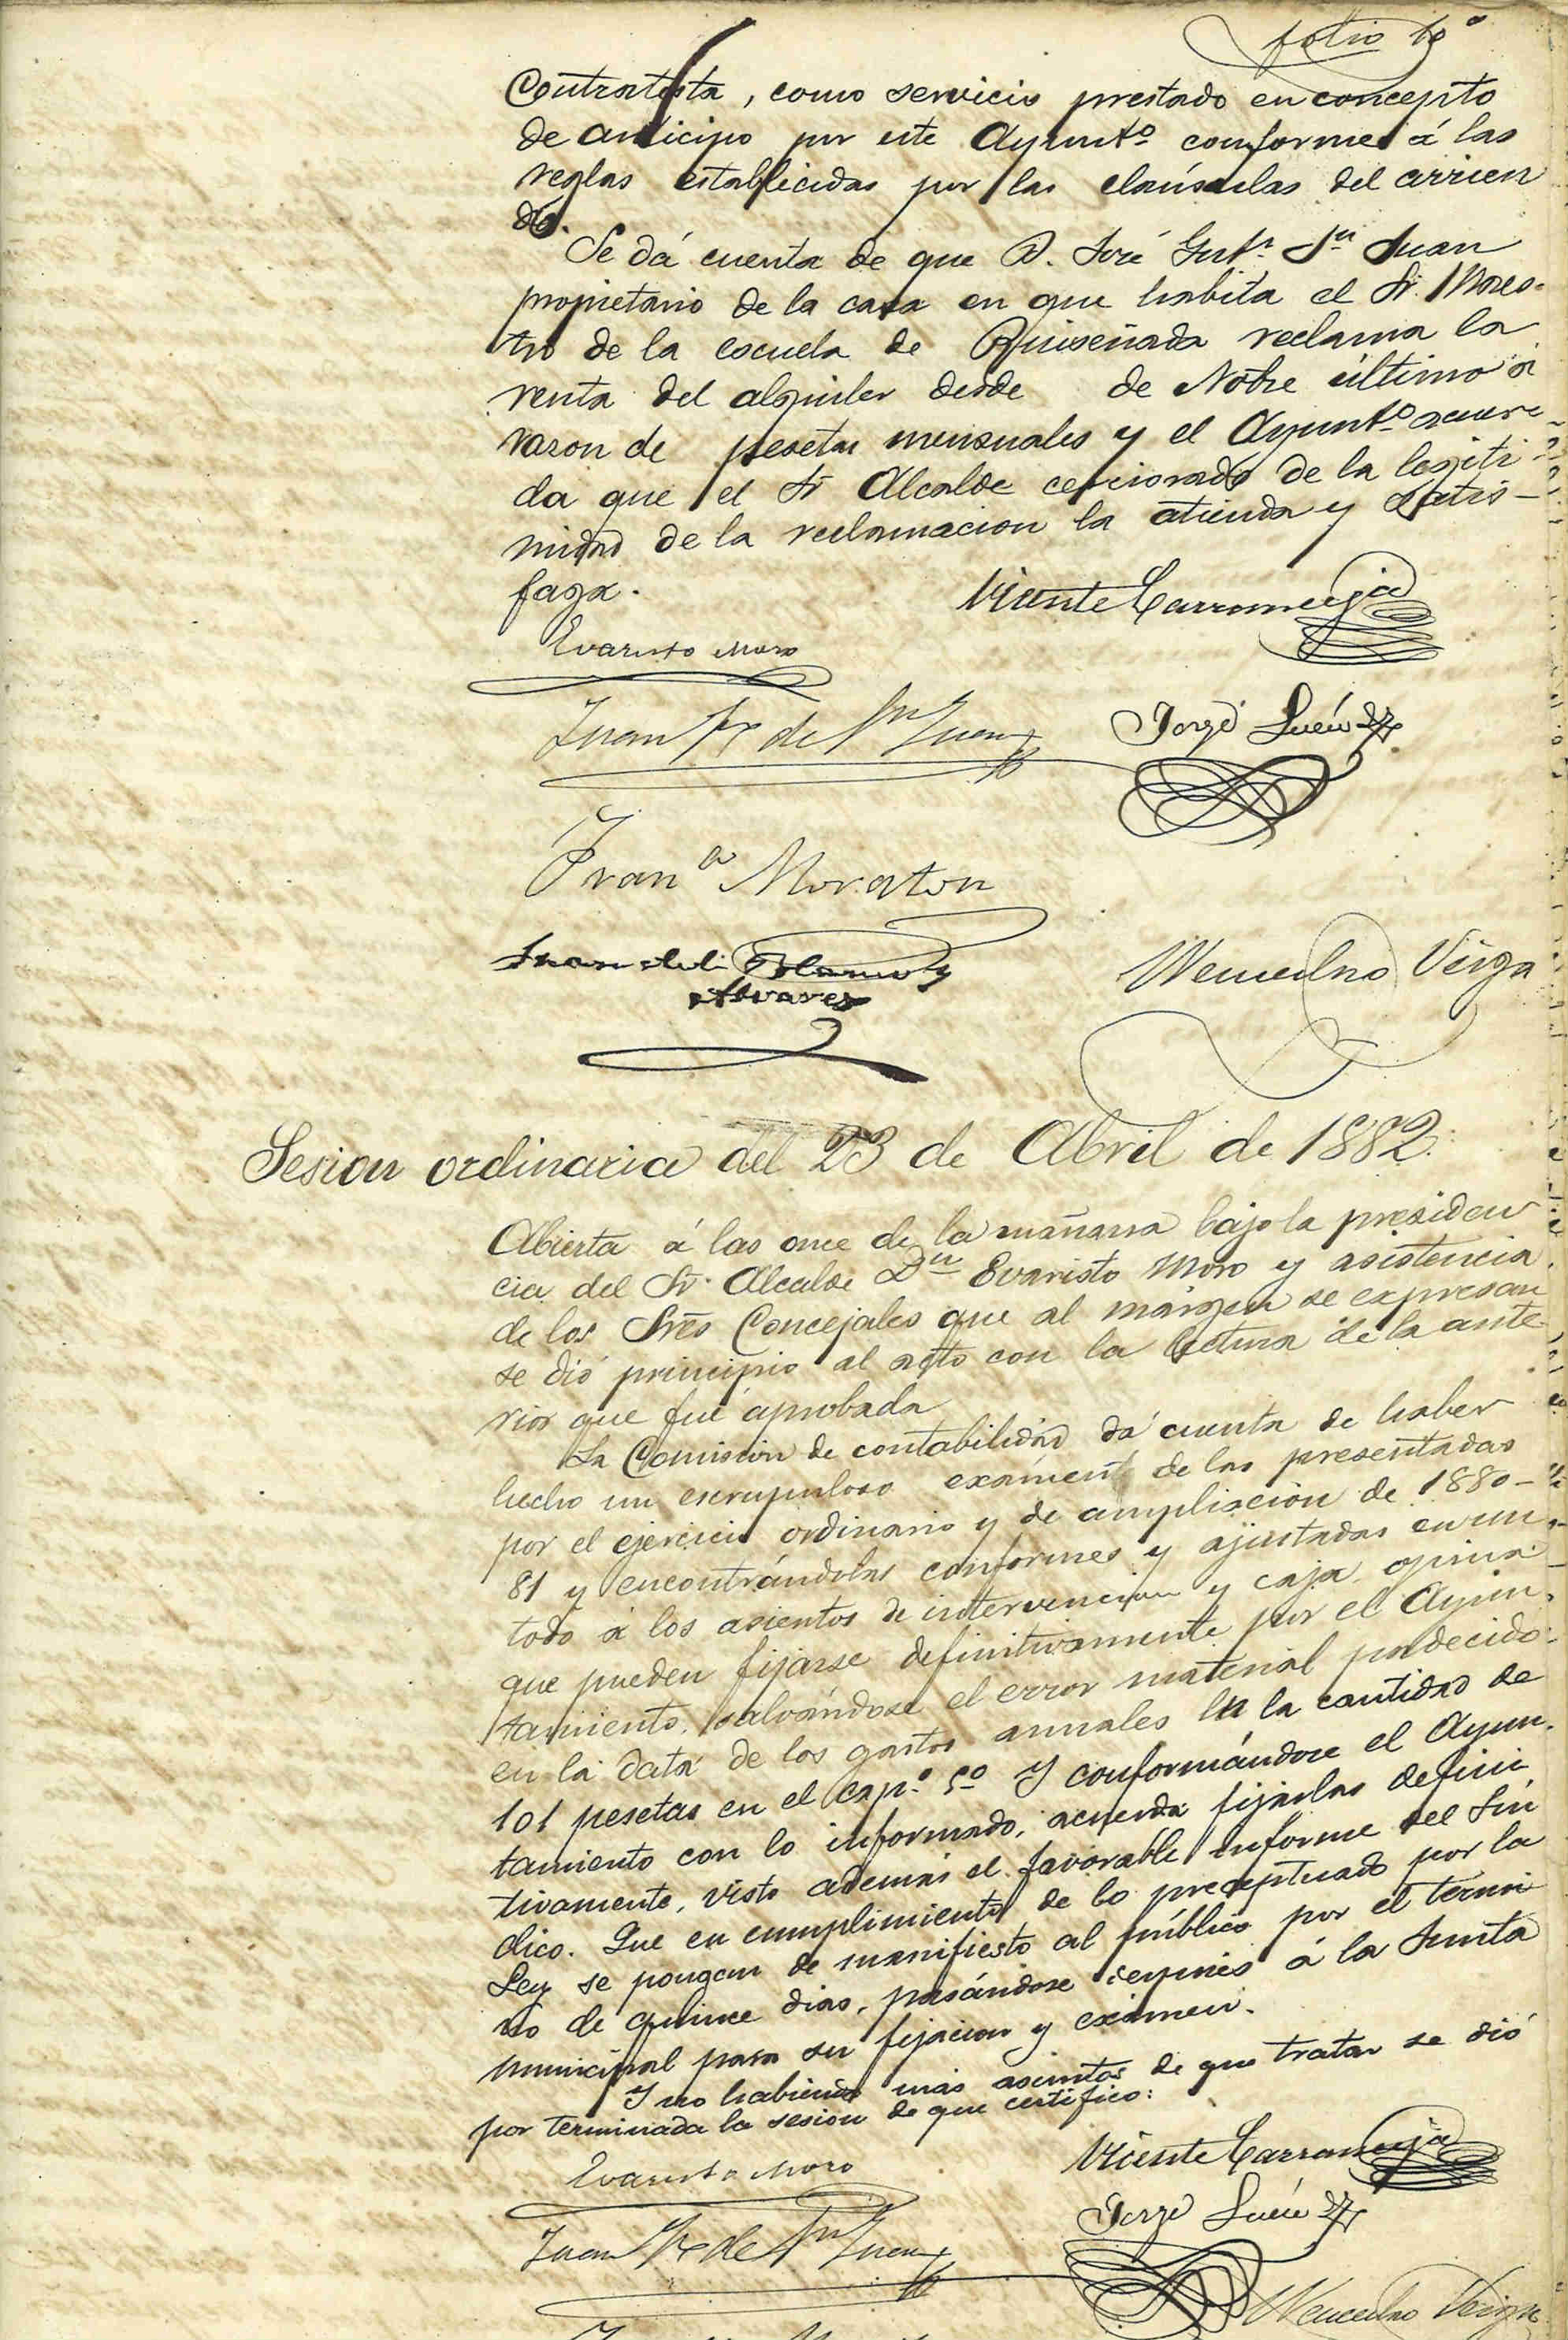 folio
Contratista, como servicio prestado en concepto
de anticipo por este Ayuntº conforme á las
reglas establecidas por las claúsulas del arrien
do.
Se dá cuenta de que D. José Gutʳ Sⁿ Juan
propietario de la casa en que habita el Sr. Maes-
tro de la escuela de Ruiseñada reclama la
renta del alquiler desde de Nobre último á
razon de pesetas mensuales y el Ayuntº acuer
da que el Sr Alcalde cerciorado de la legiti-
midad de la reclamacion la atienda y satis-
faga.
Vicente Carranceja
Evaristo Moro
Juan de Sn Juan
Jorge
Franº Moraton
Juan Alvarez
Wenceslao Veiga
Sesion ordinaria del 23 de Abril de 1882.
Abierta á las once de la mañana bajo la presiden
cia del Sr. Alcalde Dⁿ Evaristo Moro y asistencia
de los Sres Concejales que al márgen se expresan
se dió principio al acto con la lectura de la ante-
rior que fué aprobada
La Comision de contabilidad dá cuenta de haber
hecho un escrupuloso exámen de las presentadas
por el ejercicio ordinario y de ampliacion de 1880-
81 y encontrándolas conformes y ajustadas en un
todo á los asientos de intervencion y caja, opina
que pueden fijarse definitivamente por el Ayun-
tamiento, salvándose el error material padecido
en la data de los gastos anuales en la cantidad de
101 pesetas en el capº 5º Y conformándose el Ayun-
tamiento con lo informado, acuerda fijarlas defini
tivamente, visto además el favorable informe del Sín
dico. Que en cumplimiento de lo preceptuado por la
Ley se pongan de manifiesto al público por el térmi
no de quince dias, pasándose despues á la Junta
municipal para su fijacion y exámen.
Y no habiendo más asuntos de que tratar se dió
por terminada la sesion de que certifico:
Vicente Carranceja
Evaristo Moro
Jorge
Juan de Sn Juan
Wenceslao Veiga